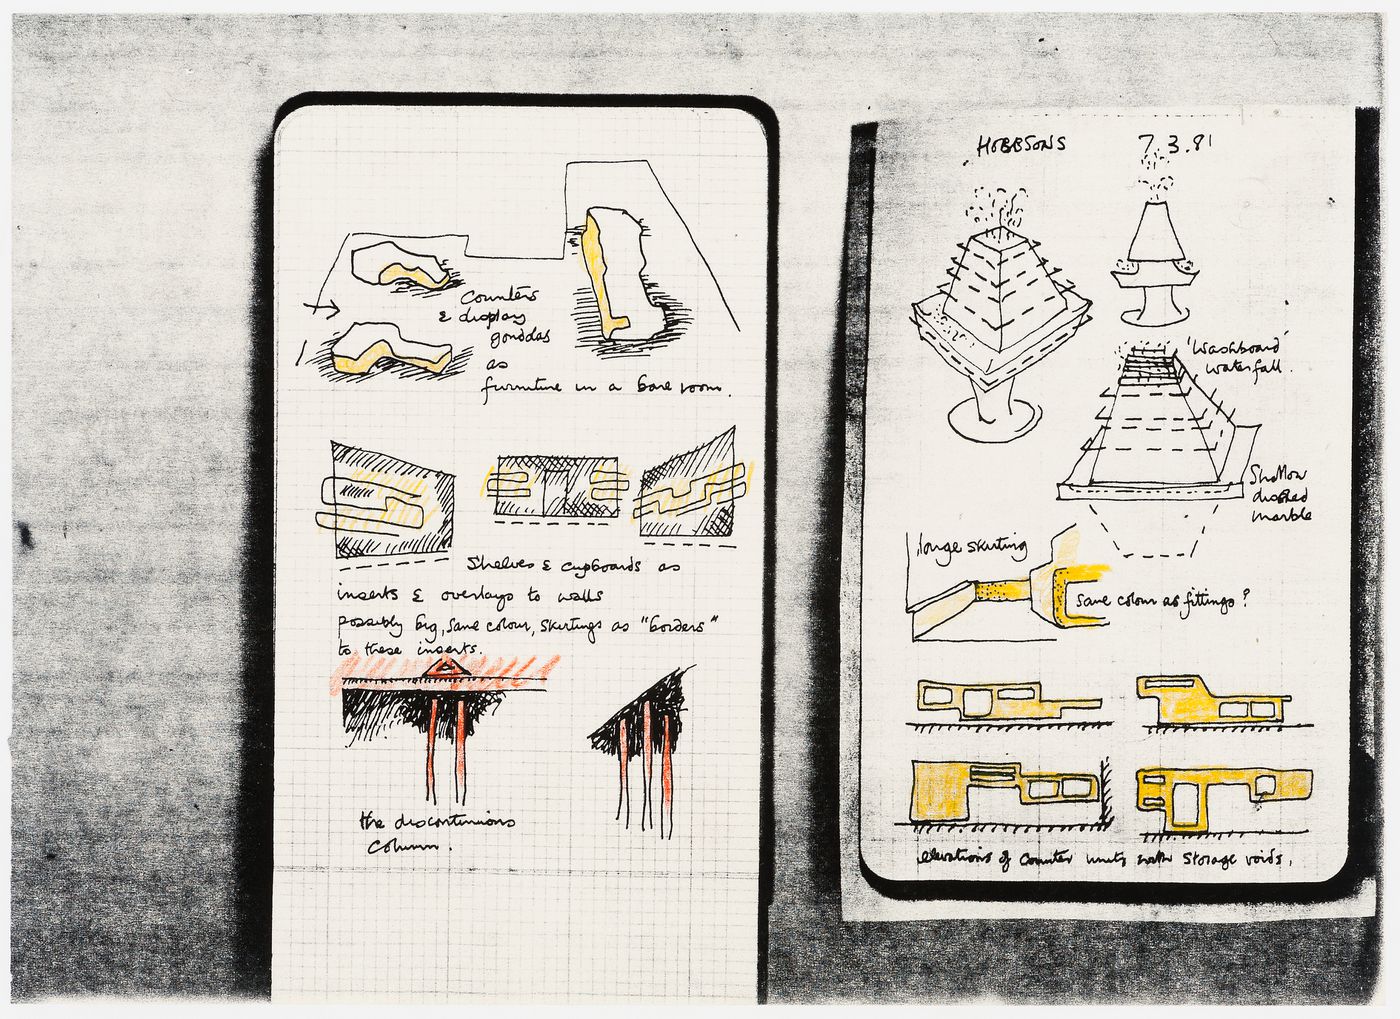 Counters
& display
gondolas
as
furniture in a bare room.
Shelves & cupboards as
inserts & overlays to walls
possibly big, same colour, skirtings as "borders"
to these inserts.
the discontinuous
column.
HOBBSONS 7.3.81
'Washboard'
waterfall.
Shallow
dished
marble
large skirting
same colour as fittings?
elevations of counter units with storage voids.